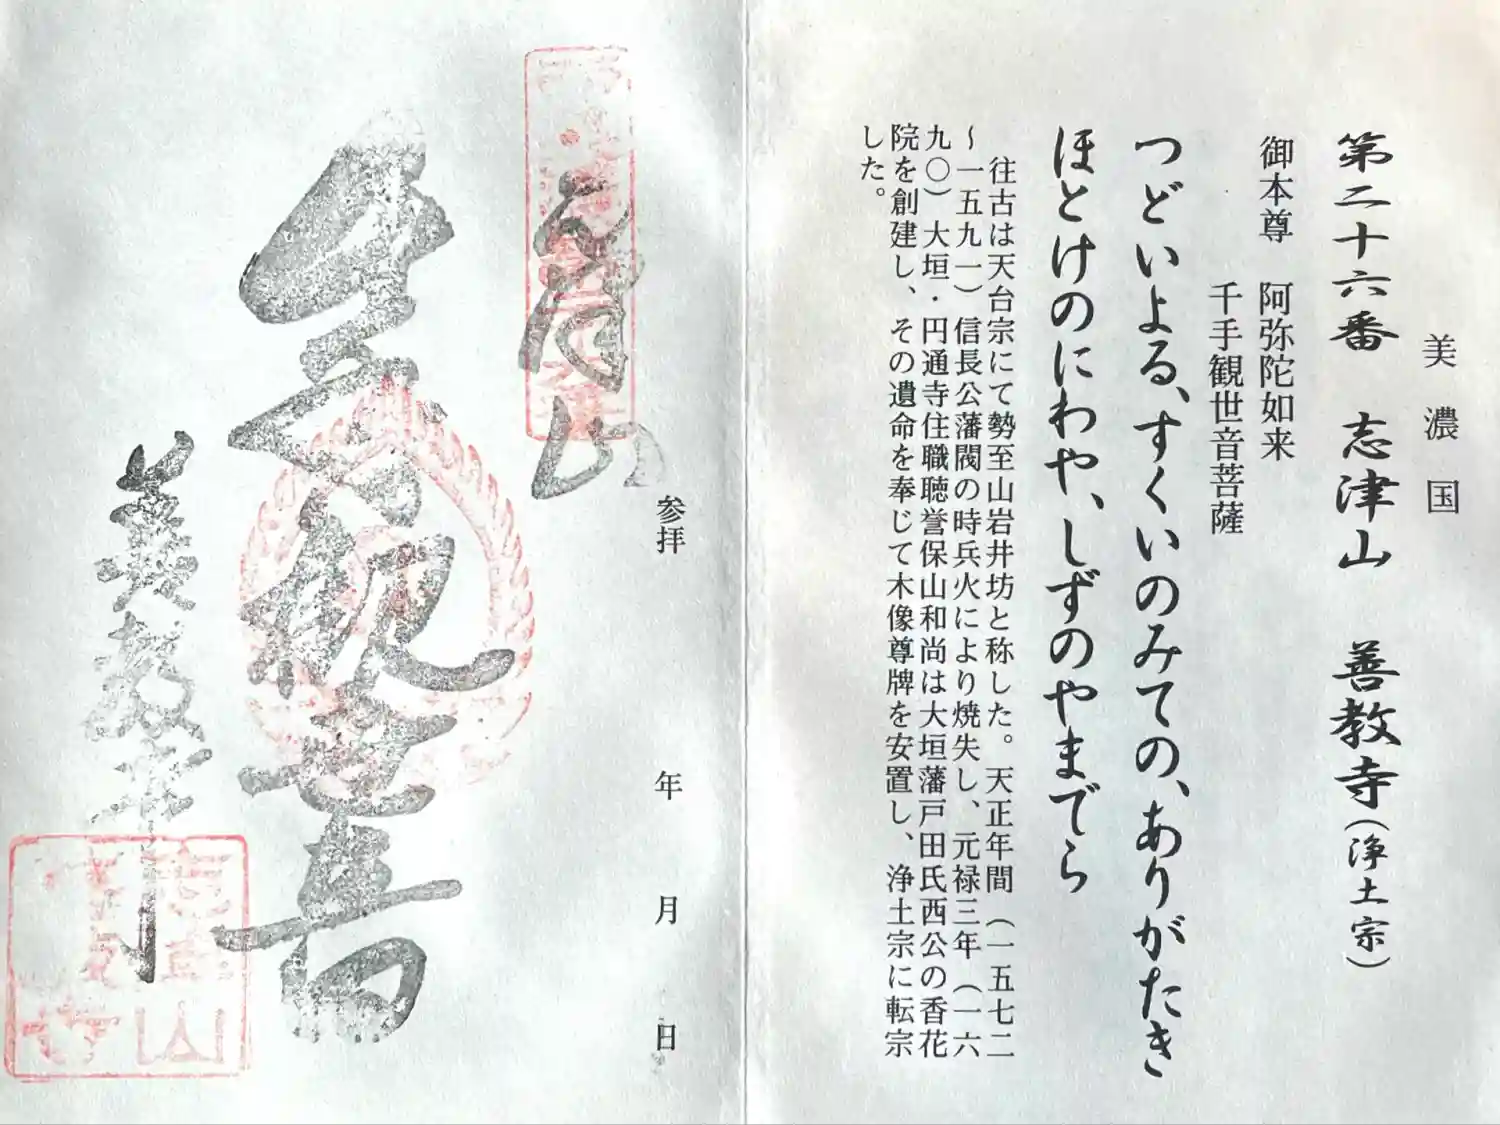 美濃国
第二十六番　志津山　善教寺（浄土宗）
御本尊　阿弥陀如来
千手観世音菩薩
つどいよる、すくいのみての、ありがたき
ほとけのにわや、しずのやまでら
往古は天台宗にて勢至山岩井坊と称した。天正年間（一五七二
〜一五九一）信長公藩閥の時兵火により焼失し、元禄三年（一六
九〇）大垣・円通寺住職聴誉保山和尚は大垣藩戸田氏西公の香花
院を創建し、その遺命を奉じて木像尊牌を安置し、浄土宗に転宗
した。
参拝　年　月　日
善教寺